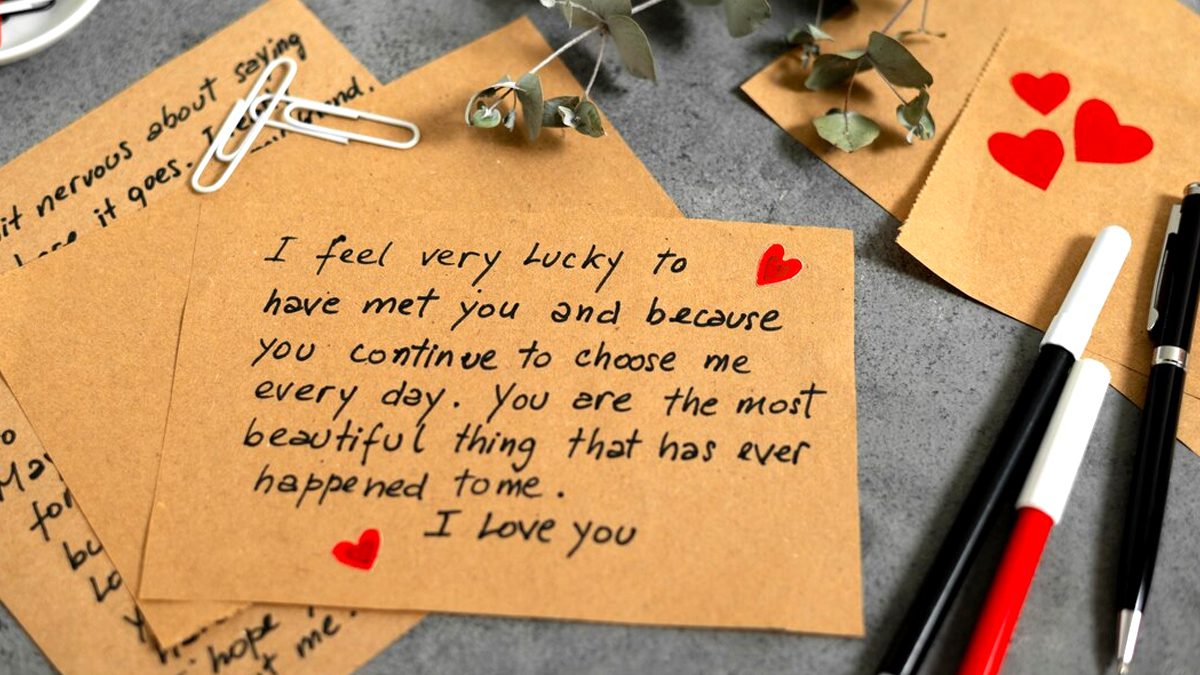 bit nervous about saying
it goes. I
I feel very Lucky to
have met you and because
you continue to choose me
every day. You are the most
beautiful thing that has ever
happened to me.
I Love you
for
hope
me.